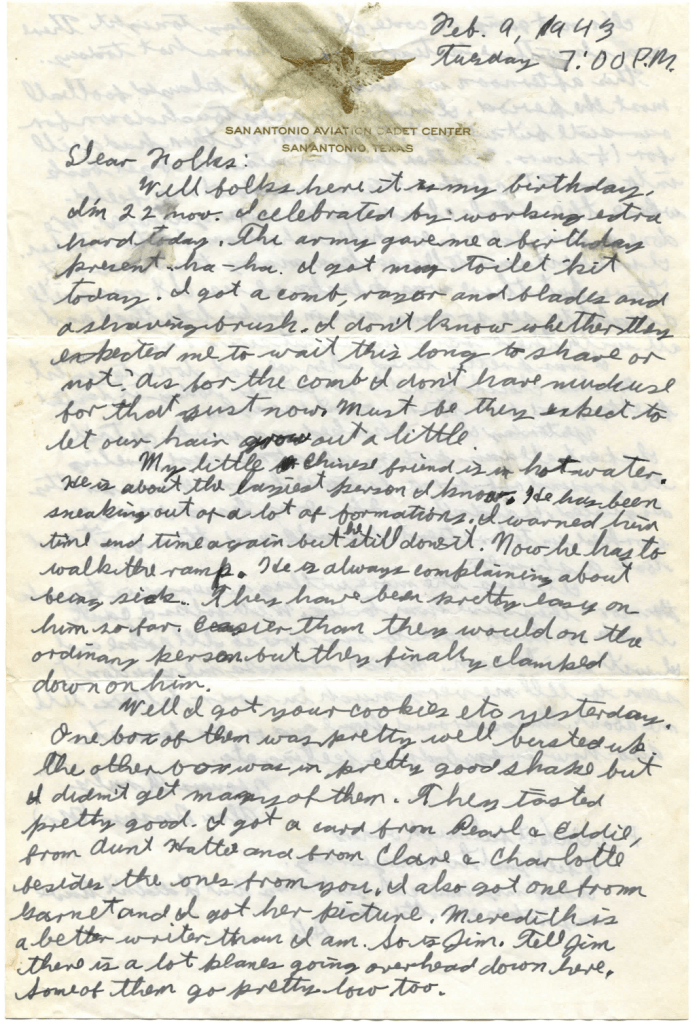 Feb. 9, 1943
Tuesday 7:00 P.M.
SAN ANTONIO AVIATION CADET CENTER
SAN ANTONIO, TEXAS
Dear Folks:
Well folks here it is my birthday.
I'm 22 now. I celebrated by working extra
hard today. The army gave me a birthday
present ha-ha. I got my toilet kit
today. I got a comb, razor and blades and
a shaving brush. I don't know whether they
expected me to wait this long to shave or
not. As for the comb I don't have much use
for that just now. Must be they expect to
let our hair grow out a little.
My little Chinese friend is in hot water.
He is about the laziest person I know. He has been
sneaking out of a lot of formations. I warned him
time and time again but he still does it. Now he has to
walk the ramp. He is always complaining about
being sick. They have been pretty easy on
him so far. Easier than they would on the
ordinary person but they finally clamped
down on him.
Well I got your cookies etc yesterday.
One box of them was pretty well busted up.
The other box was in pretty good shape but
I didn't get many of them. They tasted
pretty good. I got a card from Pearl & Eddie,
from Aunt Hattie and from Clare & Charlotte
besides the ones from you. I also got one from
Garnet and I got her picture. Meredith is
a better writer than I am. So is Jim. Tell Jim
there is a lot planes going overhead down here.
Some of them go pretty low too.